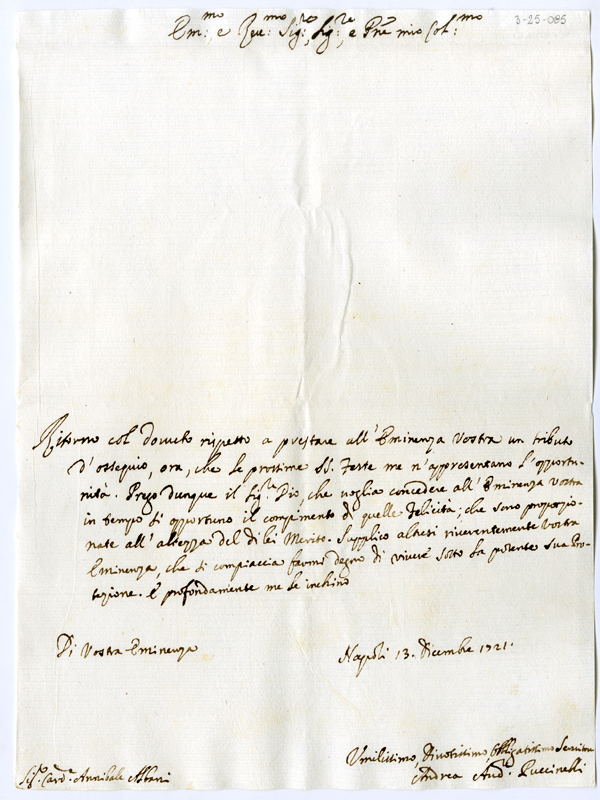 3-25-085
Em:mo e Reu:mo Sig:re, Sig:re, e Pñe mio Col:mo
Ritorno col dovuto rispetto a prestare all'Eminenza Vostra un tributo
d'ossequio, ora, che le prossime SS. Feste me n'appresentano l'opportu-
nità. Prego dunque il Sig:re Dio, che voglia concedere all'Eminenza vostra
in tempo sì opportuno il compimento di quelle felicità; che sono proporzio-
nate all'altezza del di lei Merito. Supplico altresì riverentemente Vostra
Eminenza, che si compiaccia farmi degno di vivere sotto la potente sua Pro-
tezione. E profondamente me le inchino
Di Vostra Eminenza
Napoli 13. Dicembre 1721.
Umilissimo, Divotissimo, Obbligatissimo Servitore
Sig:r Card: Annibale Albani
Andrea Aud: Puccinelli